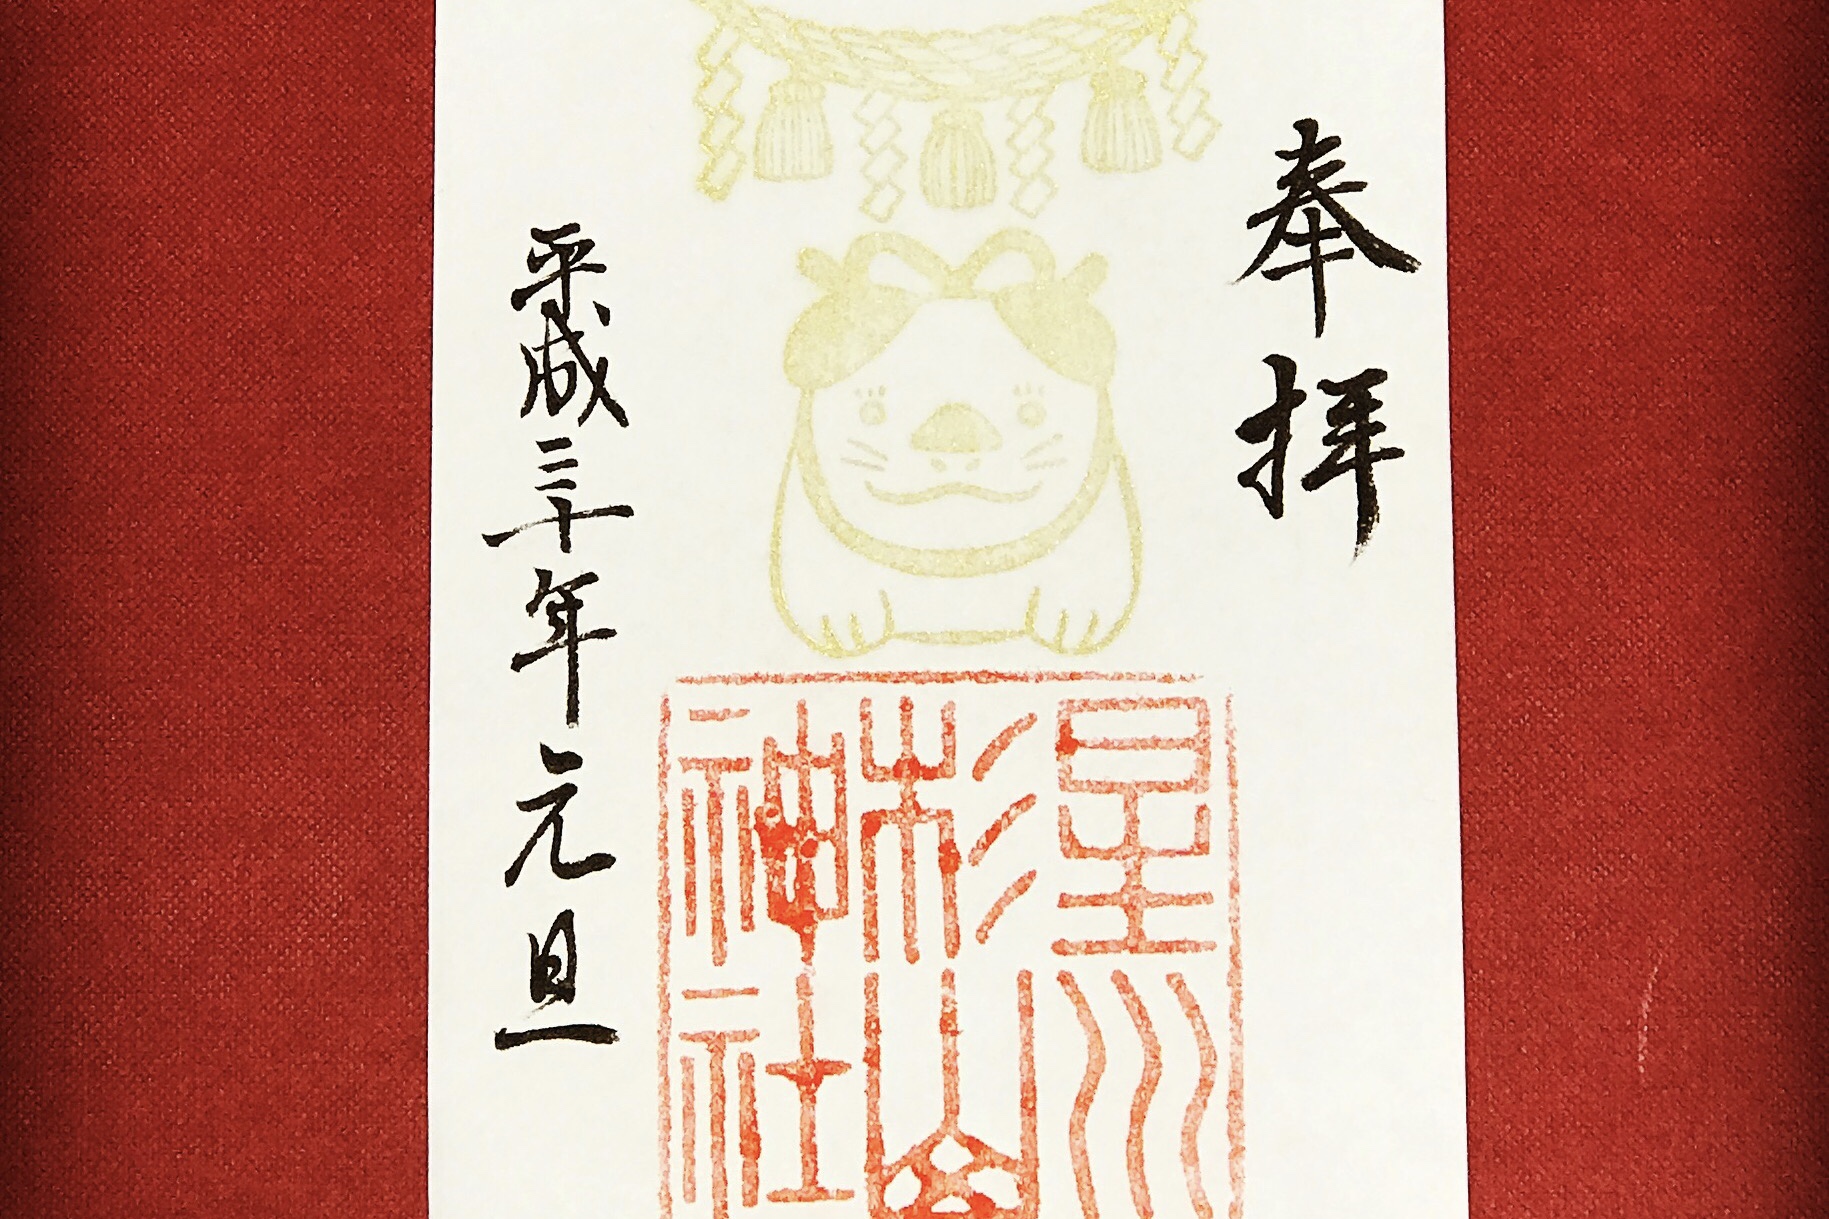 奉拝
星川
杉山
神社
平成三十年元旦